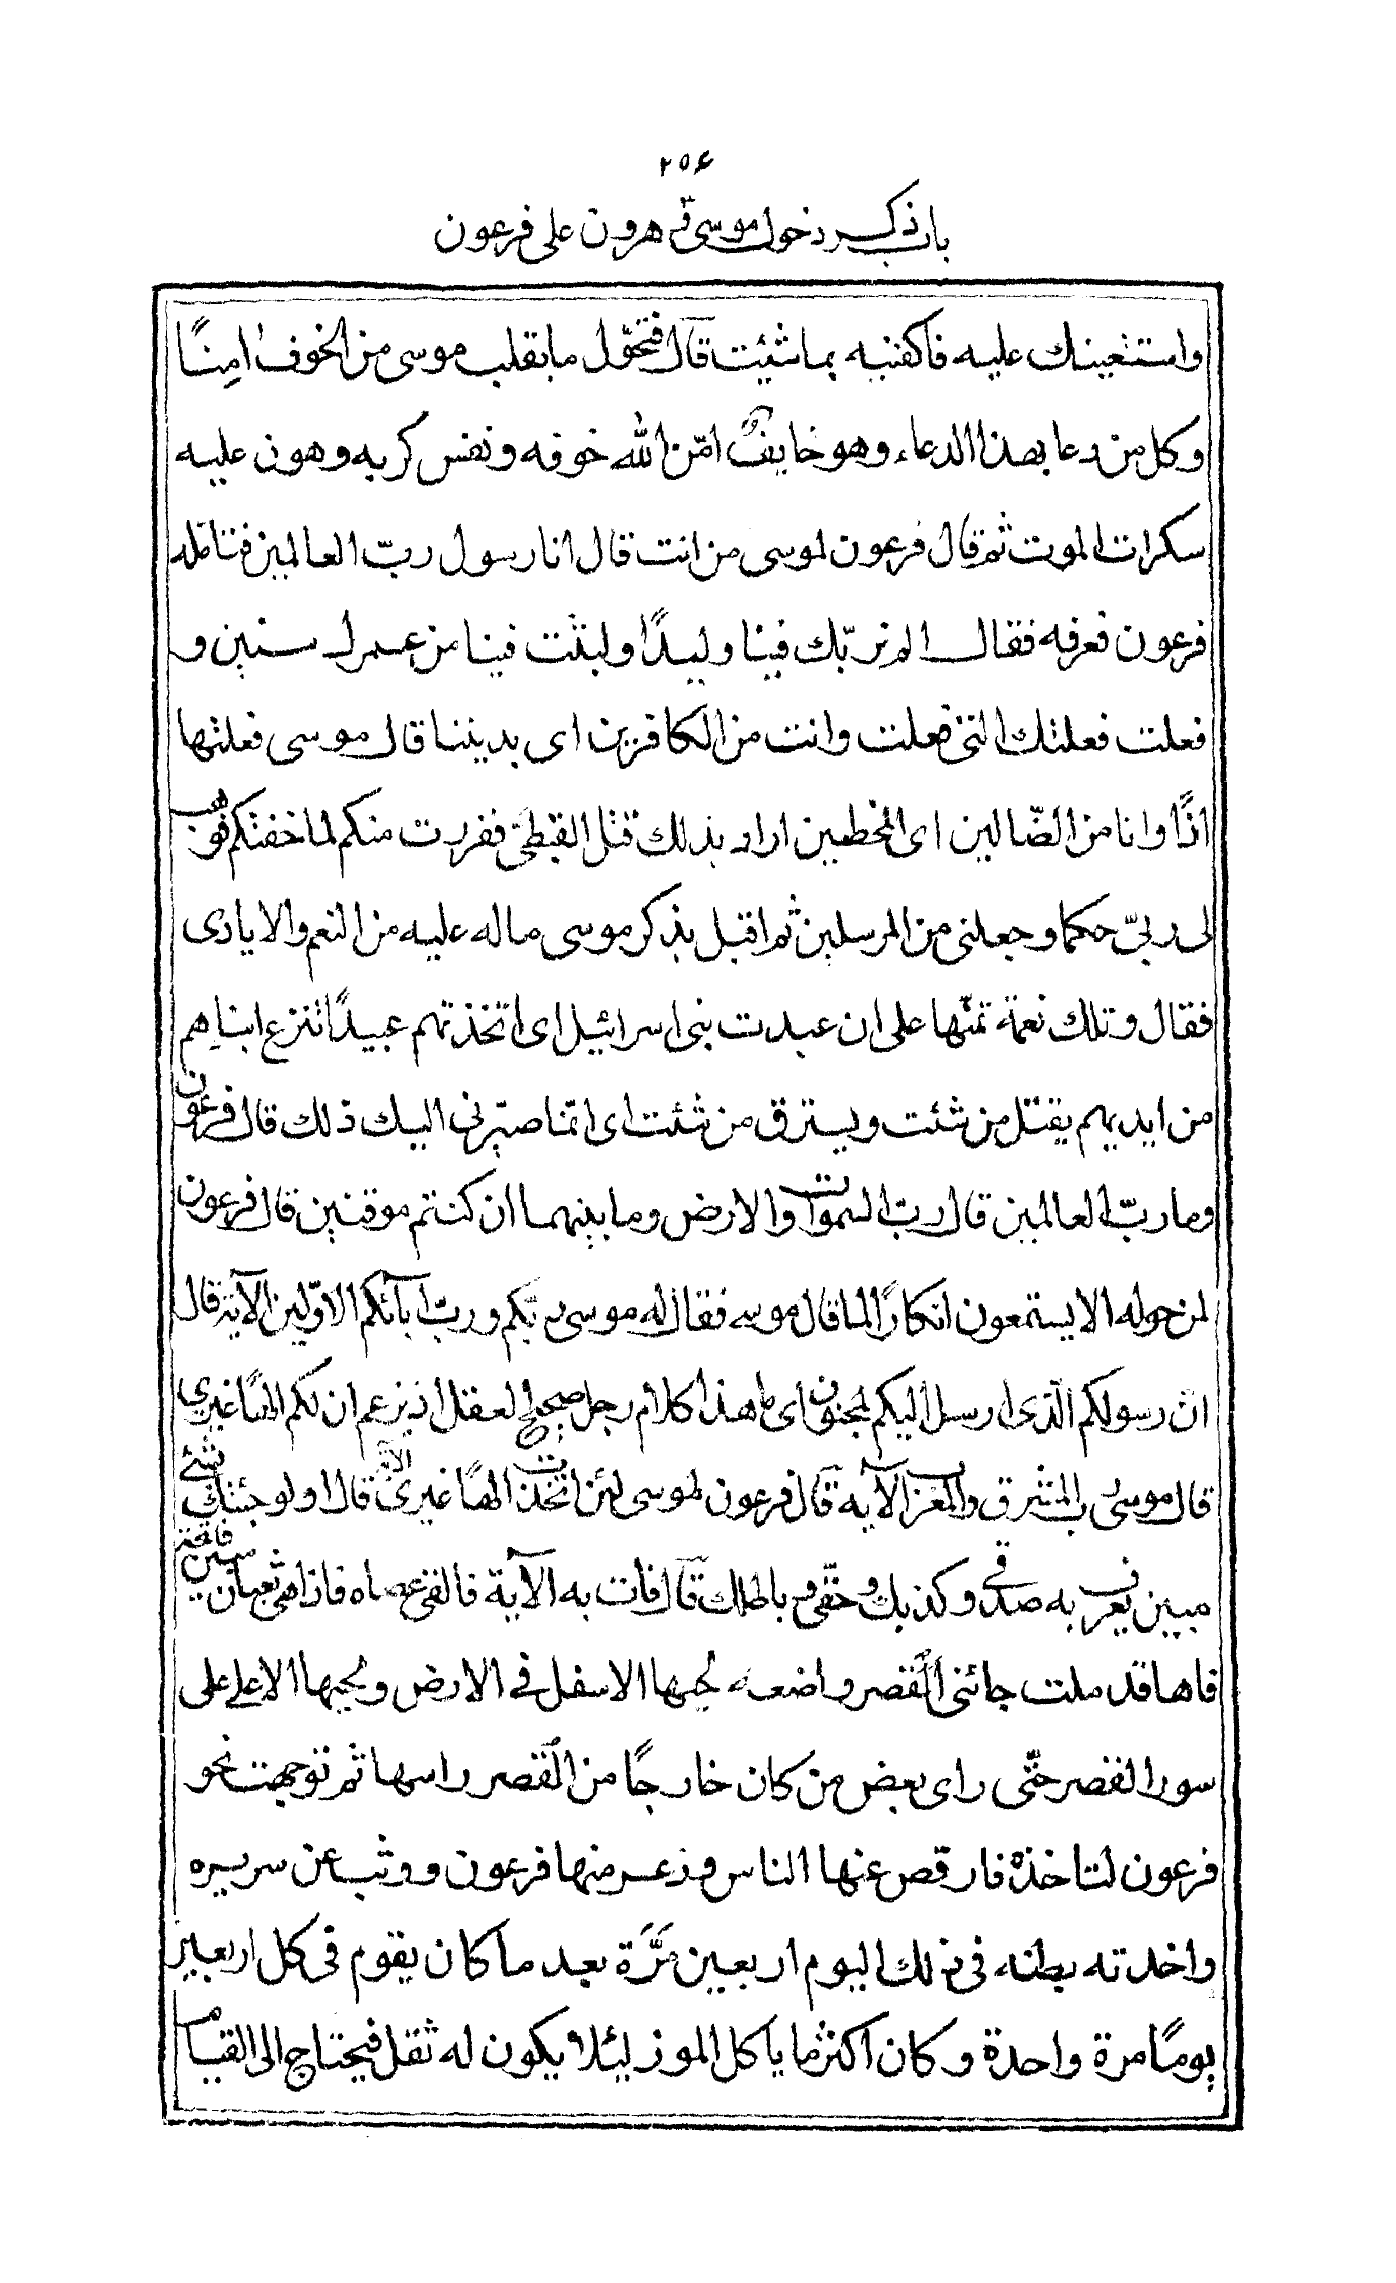 ٢٥٦
باب ذكر دخول موسى و هرون على فرعون
واستغينك عليه فاكفنيه بما شئت قال فتحوّل ما بقلب موسى من الخوف امِنًا
وكل من دعا بهذا الدعاء وهو خايف امّن الله خوفه ونفس كربه وهون عليه
سكرات الموت ثم قال فرعون لموسى من انت قال انا رسول ربّ العالمين فتامّله
فرعون فعرفه فقال الم نربّك فينا وليدًا ولبثت فينا من عمرك سنين و
فعلت فعلتك التى فعلت وانت من الكافرين اى بديننا قال موسى فعلتها
اذًا وانا من الضّالين اى المخطين اراد بذلك قتل القبطىّ ففررت منكم لما خفتكم فوهب
لى ربىّ حكما وجعلنى من المرسلين ثم اقبل بذكر موسى ماله عليه من النعم والايادى
فقال وتلك نعمة تمنّها على ان عبدت بنى اسرائيل اى اتخذتهم عبيدًا تنزع ابناهم
من ايديهم يقتل من شئت ويسترق من شئت اى انّما صيّرنى اليك ذلك قال فرعون
وما ربّ العالمين قال ربّ السموات والارض وما بينهما ان كنتم موقنين قال فرعون
لمن حوله الا يستمعون انكارًا لما قال موسى فقال له موسى ربّكم وربّ آبآئكم الاوّلين الآية قال
انّ رسولكم الّذى ارسل اليكم لمجنون اى ما هذا كلام رجل صحيح العقل اذ يزعم ان لكم الهًا غيرى
قال موسى رب المشرق والمغرب الآية قال فرعون لموسى لئن اتخذت الهًا غيرى الآية قال اولو جئتك بشئ
مبين يعرف به صدقى وكذبك وحقّى و باطلك قال فأت به الآية فالقى عصاه فاذا هى ثعبان مبين فاتحة
فاها قد ملت جائنى القصر واضعه لحيها الاسفل فى الارض ولحيها الاعلى على
سور القصر حتّى راى بعض من كان خارجًا من القصر راسها ثم توجهت نحو
فرعون لتاخذه فارقص عنها الناس وذعر منها فرعون ووثب عن سريره
واخدته بطنه فى ذلك اليوم اربعين مرَّة بعد ما كان يقوم فى كل اربعين
يومًا مرة واحدة وكان اكثر ما ياكل الموز ليئلا يكون له ثقل فيحتاج الى القيام